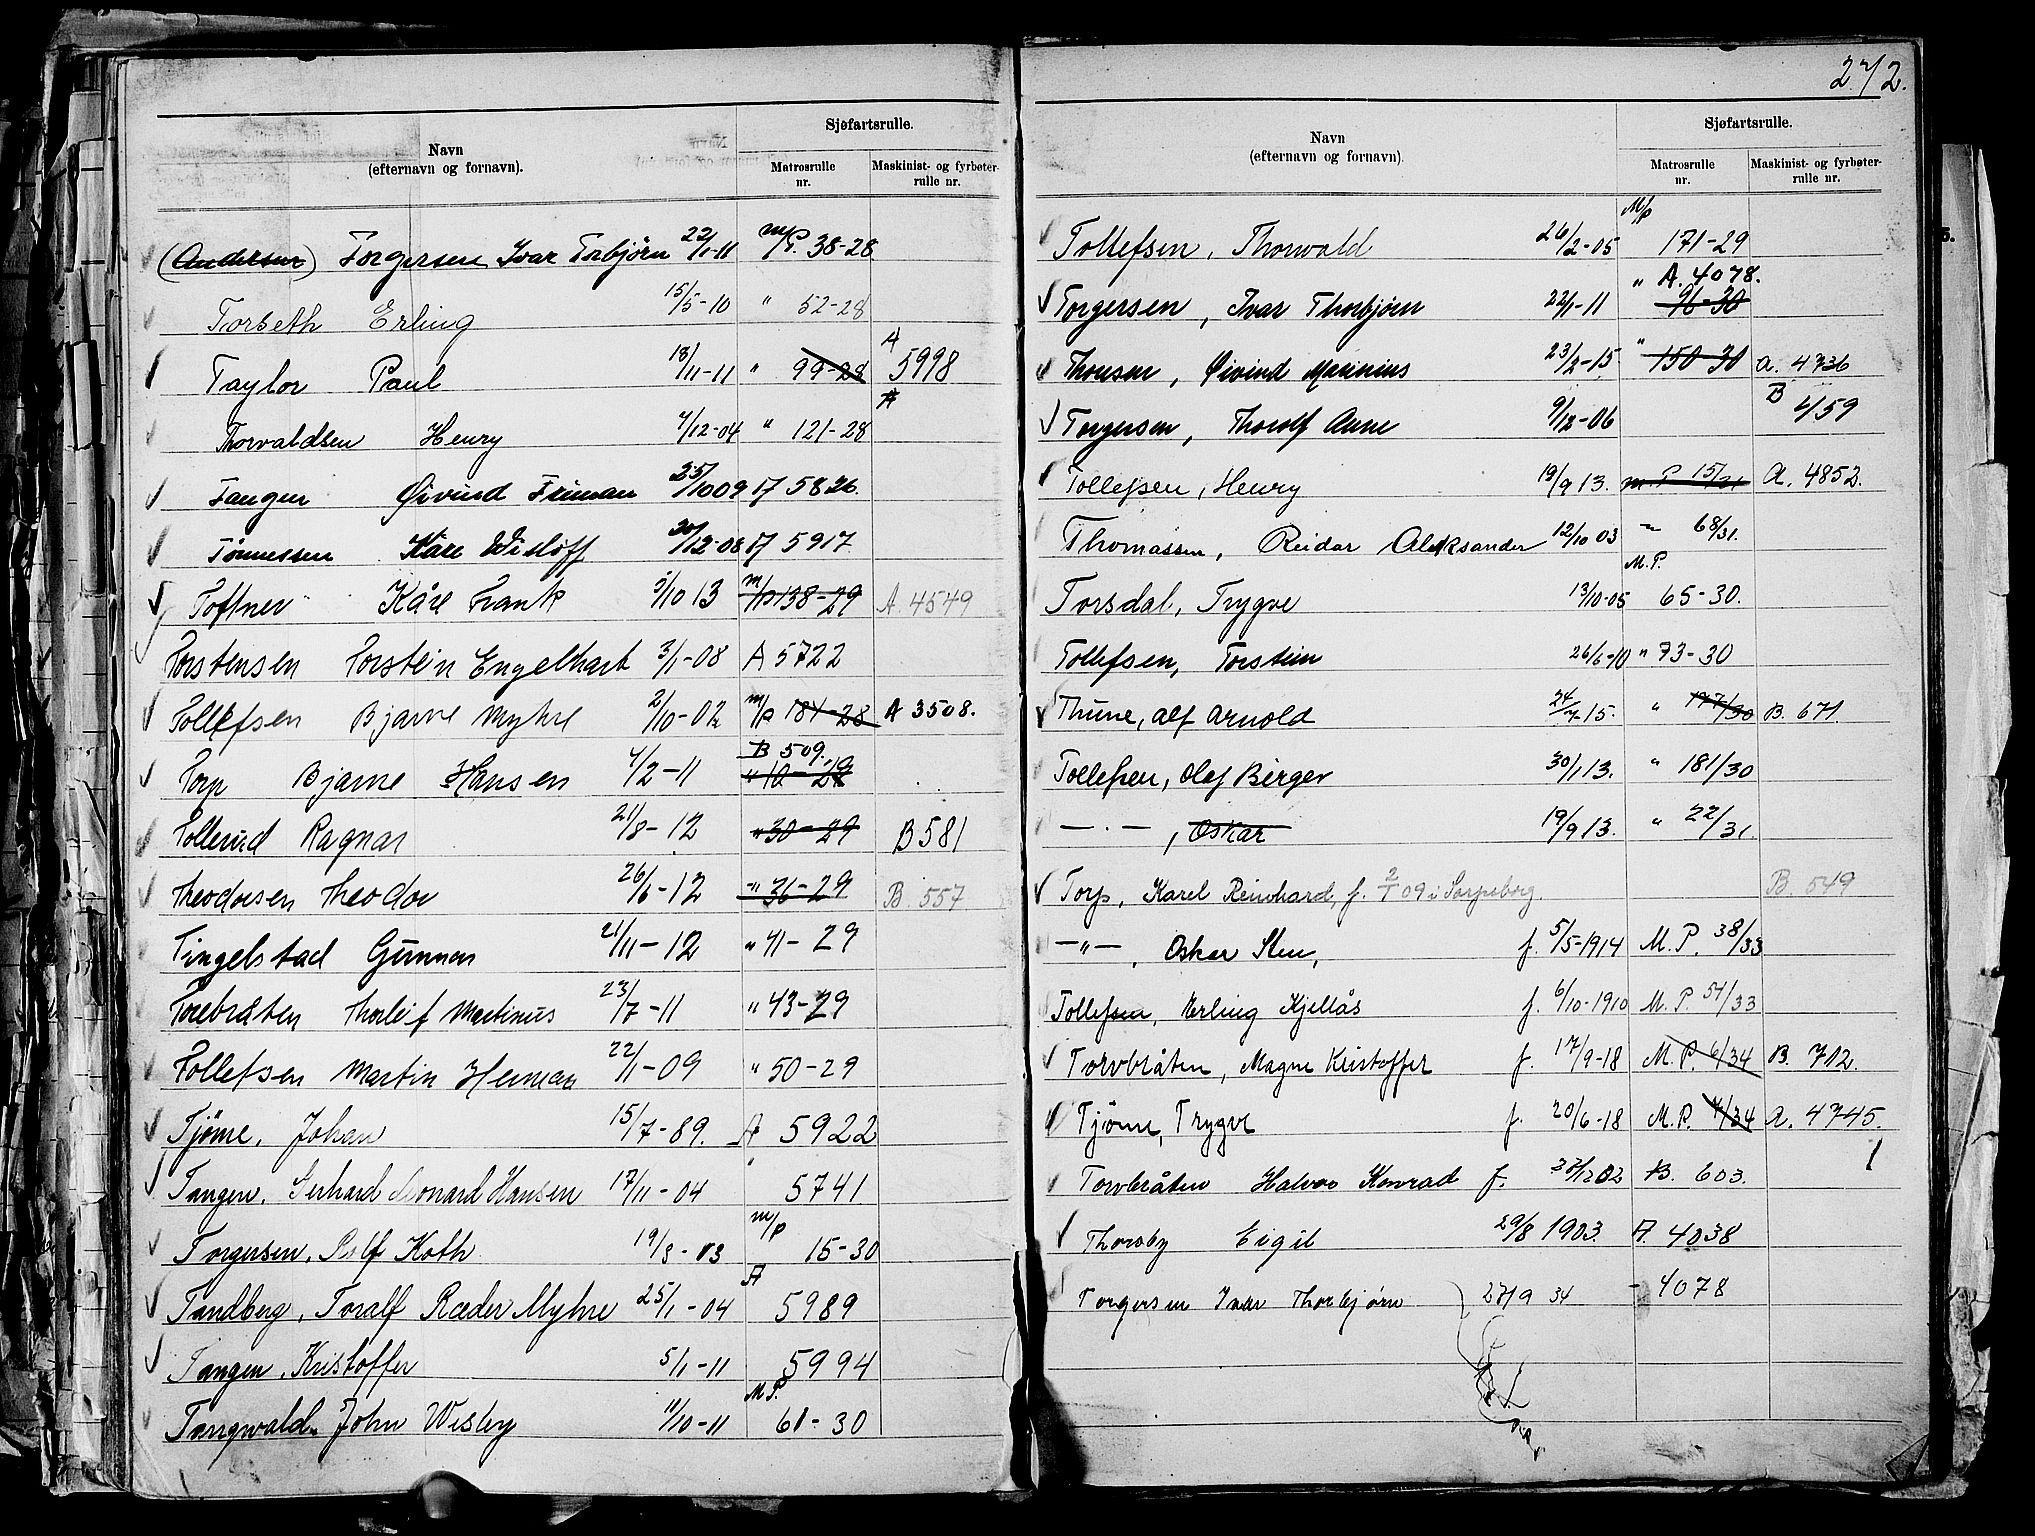 Navn
(efternavn og fornavn).
Sjøfartsrulle.
Matrosrulle nr.
Maskinist- og fyrbøter-rulle nr.
(Andersen) Torgersen Ivar Torbjörn 22/1-11 m/p. 38-28
Torseth Erling 15/5-10 " 52-28
Taylor Paul 18/11-11 " 99-28 A 5998
Thorvaldsen Henry 4/12-04 " 121-28 A
Tangen Øivind Friman 25/10 09 A 5826.
Tönnessen Kåre Wisløff 30/12-08 A 5917
Toftner Kåre Frank 5/10 13 m/p 138-29 A. 4549
Torstensen Torstein Engelhart 3/1-08 A 5722
Tollefsen Bjarne Myhre 2/10-02 m/p 184-28 A 3508.
Torp Bjarne Hansen 4/2-11 B 509. " 10-29
Tollerud Ragnar 21/8-12 " 30-29 B 581
Theodorsen Theodor 26/6-12 " 36-29 B. 557
Tingelstad Gunnar 21/11-12 " 41-29
Torebråten Thorleif Martinus 23/7-11 " 43-29
Tollefsen Martin Herman 22/1-09 " 50-29
Tjöme, Johan 15/7-89. A 5922
Tangen, Gerhard Leonard Hansen 17/11-04 " 5741
Torgersen, Rolf Koth 19/8-03 m/p 15-30
Tandberg, Toralf Ræder Myhre 25/1-04 A 5989
Tangen, Kristoffer 5/1-11 5994
Tangwald, John Wisby 11/10-11 M.P. 61-30
272.
Navn
(efternavn og fornavn).
Sjøfartsrulle.
Matrosrulle nr.
Maskinist- og fyrbøter-rulle nr.
Tollefsen, Thorwald 26/2-05 M/p 171-29
Torgersen, Ivar Thorbjörn 22/1-11 " A. 4078. 96-30
Thonsen, Øivind Marinius 23/2-15 " 150-30 A. 4736
Torgersen, Thorolf Anne 9/12-06 B 459
Tollefsen, Henry 19/9 13. M.P 15/31 A. 4852.
Thomassen, Reidar Aleksander 12/10 03 - 68/31.
Torsdal, Trygve 13/10-05 M.P. 65-30.
Tollefsen, Torstein 26/6-10 " 73-30
Thune, Alf Arnold 24/7 15. " 177/30 B. 671.
Tollefsen, Olaf Birger 30/1 13. " 181/30
—·—, Oskar 19/9 13. " 22/31.
Torp, Karel Reinhard, f. 2/1 09 i Sarpsborg. B. 549
—"—, Oskar Sten, f. 5/5-1914 M.P. 38/33
Tollefsen, Erling Kjellås f. 6/10-1910 M.P. 54/33
Torvbråten, Magne Kristoffer f. 17/9-18 M.P. 6/34 B. 702.
Tjöme, Trygve f. 20/6-18 M.P. 4/34 A. 4745.
Torvbråten Halvor Konrad f. 23/12 02 B. 603.
Thorsby Eigil 29/8 1903. A. 4038
Torgersen Ivar Thorbjørn 27/9 34 - 4078